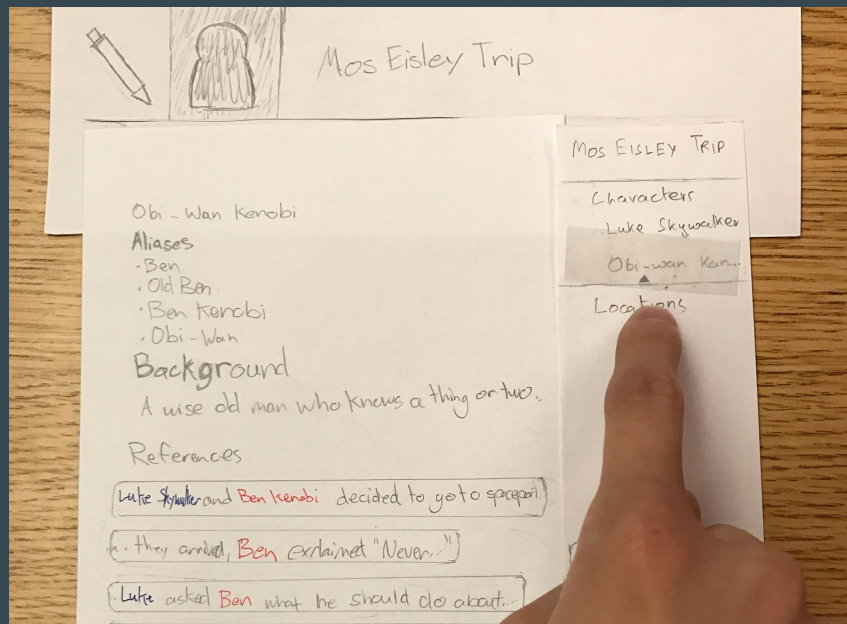 Mos Eisley Trip
Obi-Wan Kenobi
Aliases
· Ben
· Old Ben
· Ben Kenobi
· Obi-Wan
Background
A wise old man who knows a thing or two.
References
Luke Skywalker and Ben Kenobi decided to go to spaceport.
they arrived, Ben exclaimed "Never..."
Luke asked Ben what he should do about...
MOS EISLEY TRIP
Characters
Luke Skywalker
Obi-wan Kan...
Locations